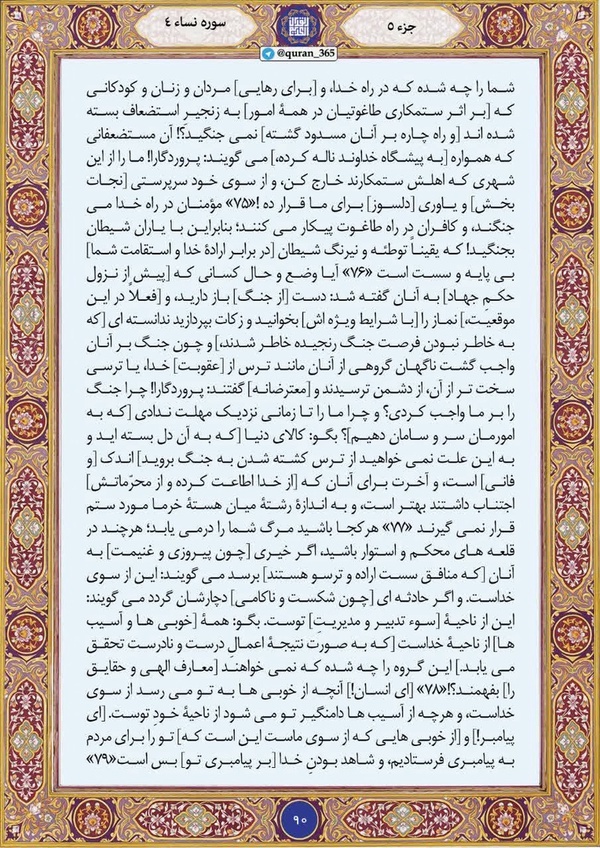 جزء ۵
سوره نساء ۴
@quran_365
شما را چه شده که در راه خدا، و [برای رهایی] مردان و زنان و کودکانی
که [بر اثر ستمکاری طاغوتیان در همهٔ امور] به زنجیرِ استضعاف بسته
شده اند [و راه چاره بر آنان مسدود گشته] نمی جنگید؟! آن مستضعفانی
که همواره [به پیشگاه خداوند ناله کرده،] می گویند: پروردگارا! ما را از این
شهری که اهلش ستمکارند خارج کن، و از سوی خود سرپرستی [نجات
بخش] و یاوری [دلسوز] برای ما قرار ده !«۷۵» مؤمنان در راه خدا می
جنگند، و کافران در راه طاغوت پیکار می کنند؛ بنابراین با یاران شیطان
بجنگید! که یقیناً توطئه و نیرنگ شیطان [در برابر ارادهٔ خدا و استقامت شما]
بی پایه و سست است «۷۶» آیا وضع و حال کسانی که [پیش از نزول
حکمِ جهاد] به آنان گفته شد: دست [از جنگ] باز دارید، و [فعلاً در این
موقعیت،] نماز را [با شرایط ویژه اش] بخوانید و زکات بپردازید ندانسته ای [که
به خاطر نبودن فرصت جنگ رنجیده خاطر شدند،] و چون جنگ بر آنان
واجب گشت ناگهان گروهی از آنان مانند ترس از [عقوبت] خدا، یا ترسی
سخت تر از آن، از دشمن ترسیدند و [معترضانه] گفتند: پروردگارا! چرا جنگ
را بر ما واجب کردی؟ و چرا ما را تا زمانی نزدیک مهلت ندادی [که به
امورمان سر و سامان دهیم]؟ بگو: کالای دنیا [که به آن دل بسته اید و
به این علت نمی خواهید از ترس کشته شدن به جنگ بروید] اندک [و
فانی] است، و آخرت برای آنان که [از خدا اطاعت کرده و از محرّماتش]
اجتناب داشتند بهتر است، و به اندازهٔ رشتهٔ میان هستهٔ خرما مورد ستم
قرار نمی گیرند «۷۷» هرکجا باشید مرگ شما را درمی یابد؛ هرچند در
قلعه های محکم و استوار باشید، اگر خیری [چون پیروزی و غنیمت] به
آنان [که منافق سست اراده و ترسو هستند] برسد می گویند: این از سوی
خداست. و اگر حادثه ای [چون شکست و ناکامی] دچارشان گردد می گویند:
این از ناحیهٔ [سوء تدبیر و مدیریتِ] توست. بگو: همهٔ [خوبی ها و آسیب
ها] از ناحیهٔ خداست [که به صورت نتیجهٔ اعمالِ درست و نادرست تحقق
می یابد.] این گروه را چه شده که نمی خواهند [معارف الهی و حقایق
را] بفهمند؟!«۷۸» [ای انسان!] آنچه از خوبی ها به تو می رسد از سوی
خداست، و هرچه از آسیب ها دامنگیر تو می شود از ناحیهٔ خودِ توست. [ای
پیامبر!] و [از خوبی هایی که از سوی ماست این است که] تو را برای مردم
به پیامبری فرستادیم، و شاهد بودنِ خدا [بر پیامبری تو] بس است«۷۹»
۹۰